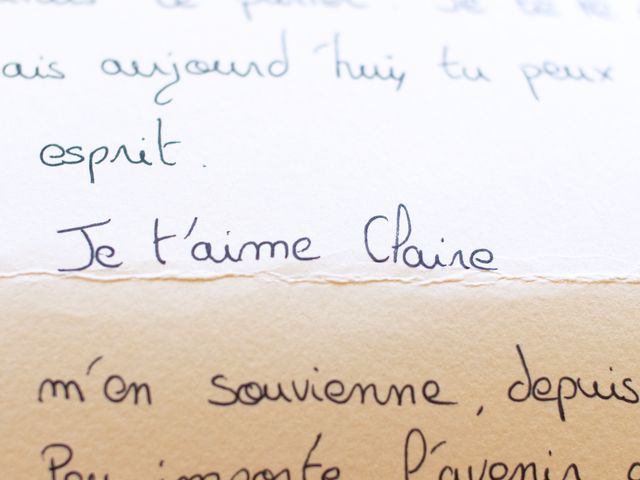 ais aujourd'hui, tu peux
esprit.
Je t'aime Claire
m'en souvienne, depuis
Peu importe l'avenir